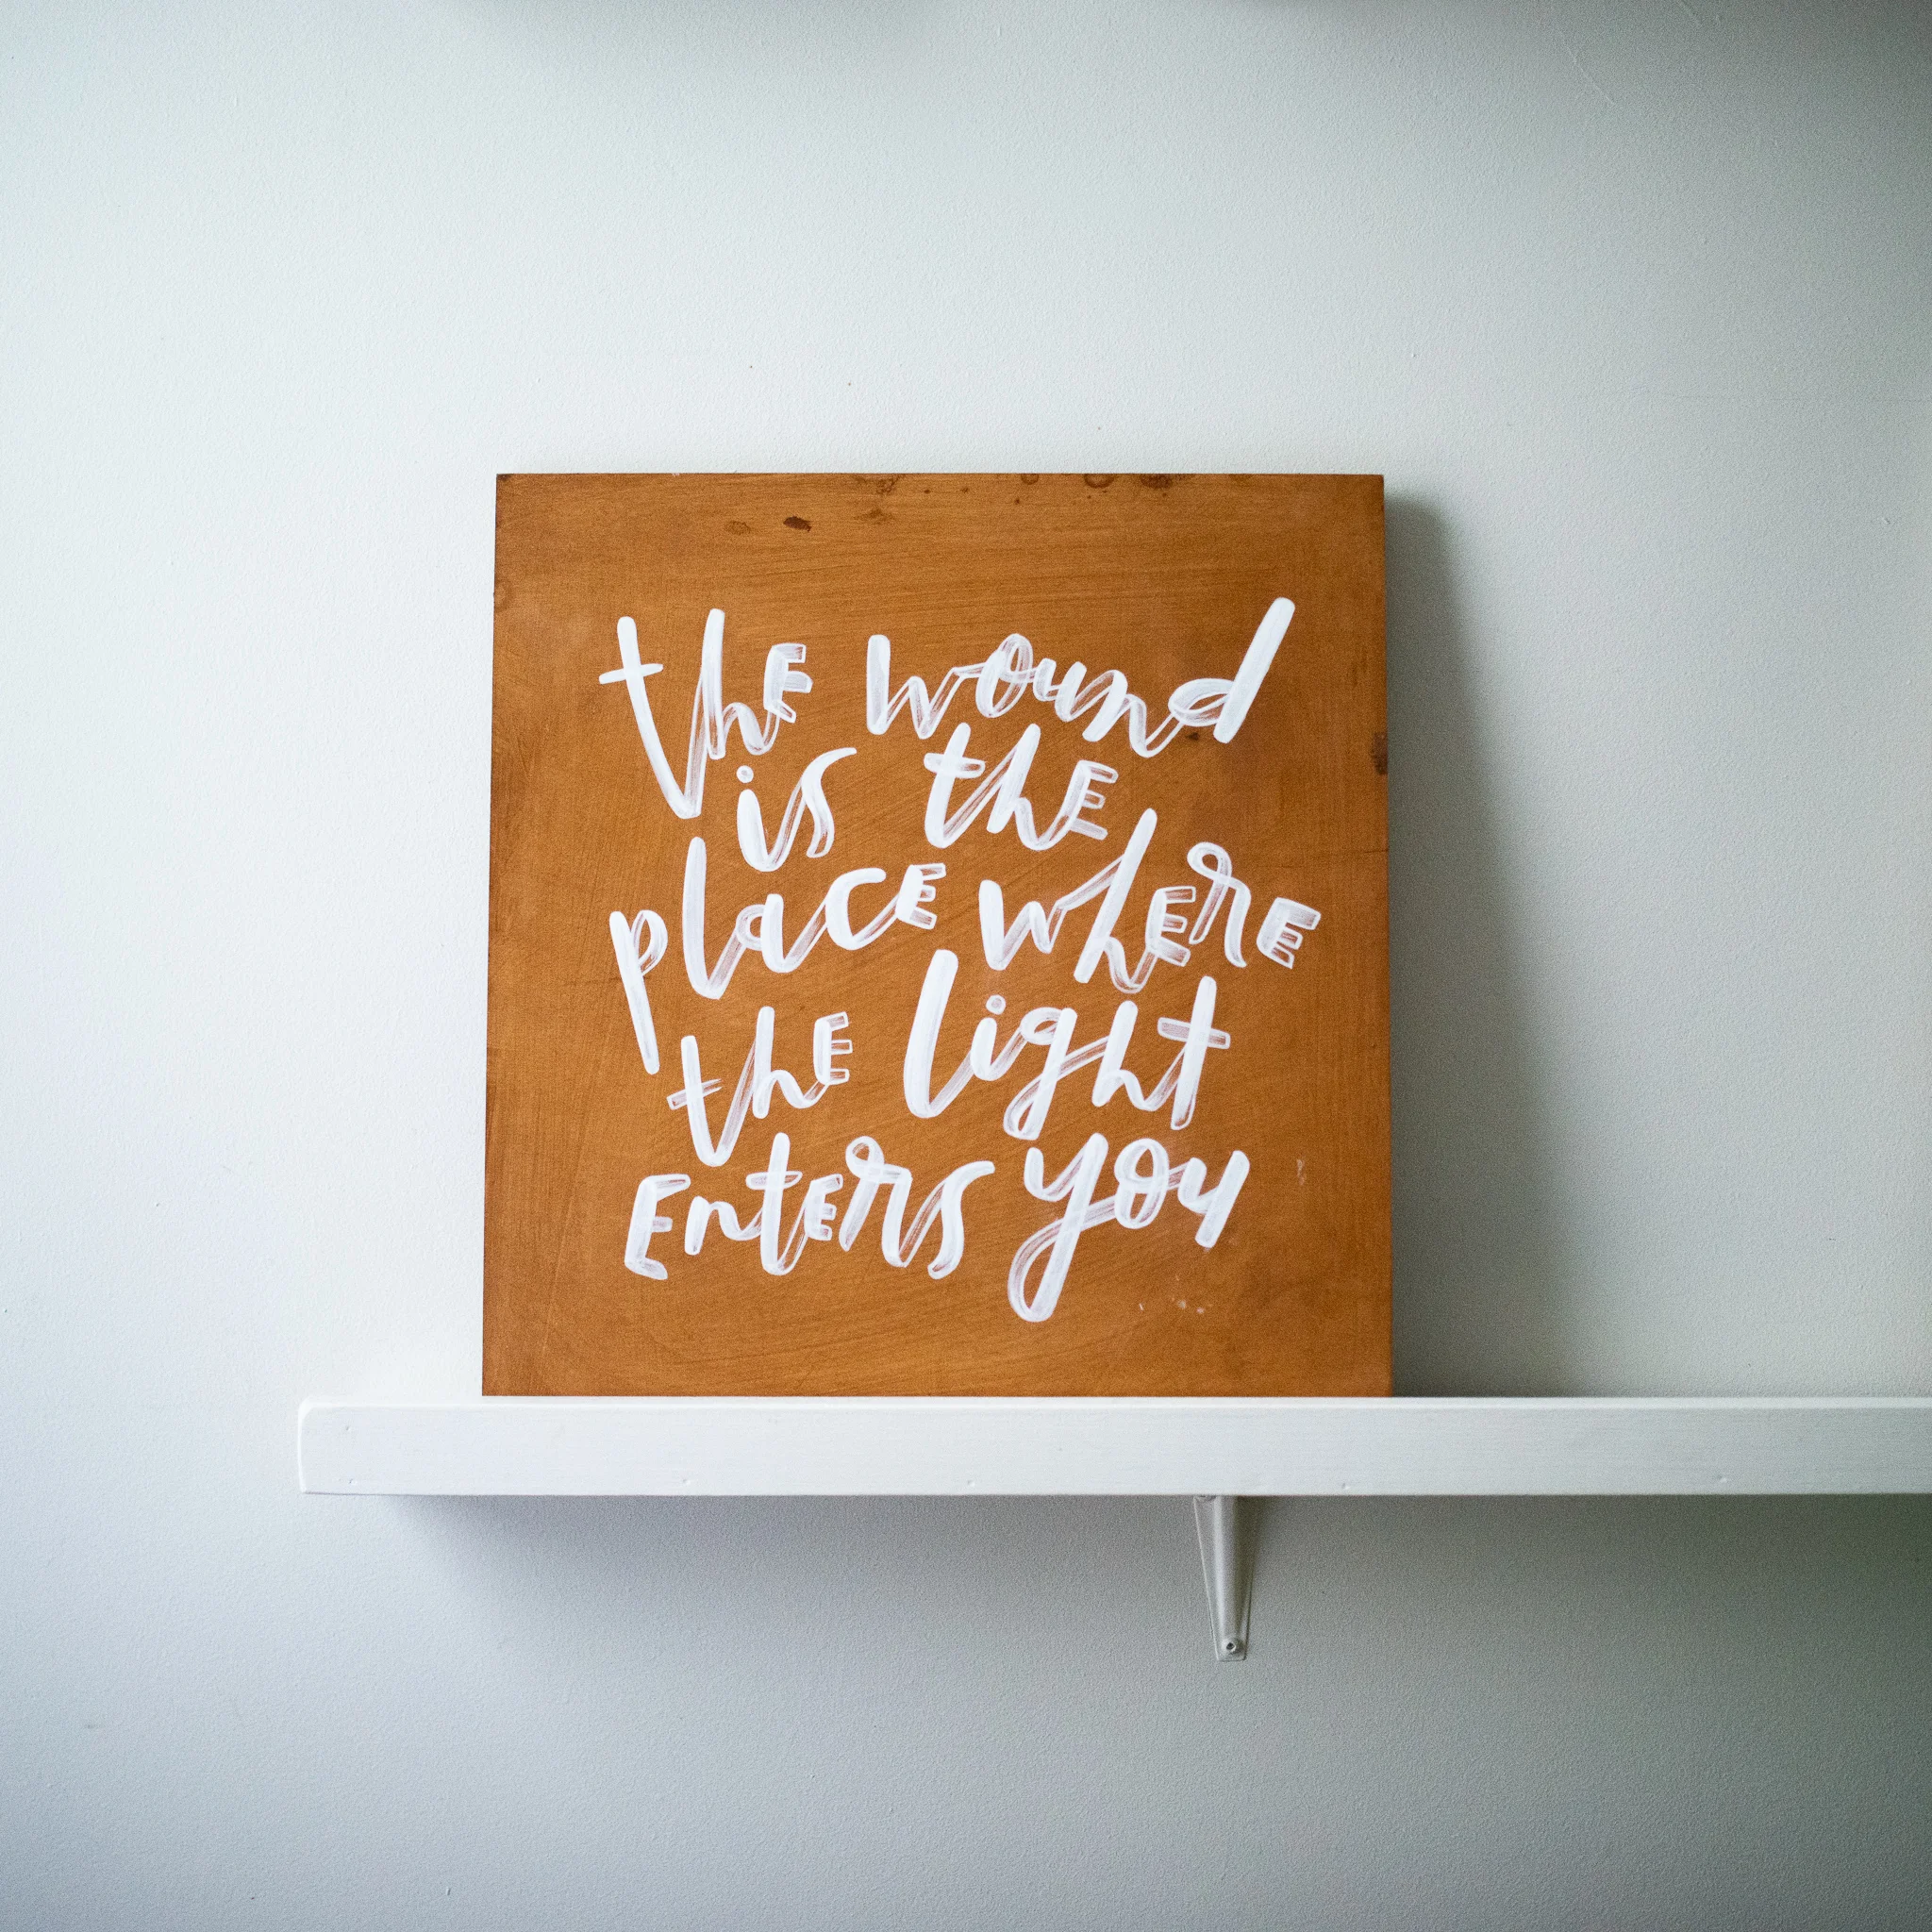 the wound
is the
place where
the light
enters you